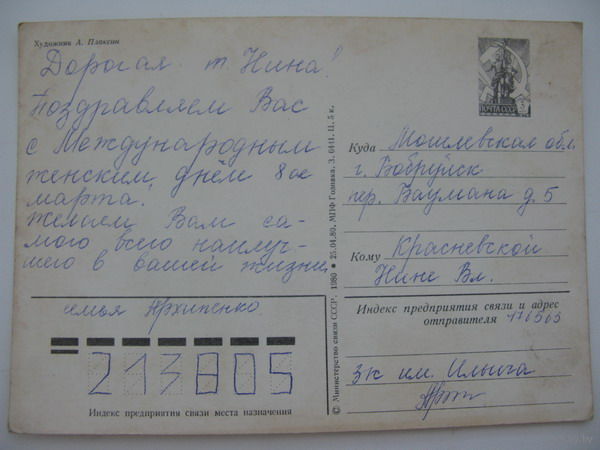 Художник А. Плаксин
Дорогая т. Нина!
Поздравляем Вас
с Международным
женским днём 8ое
марта.
Желаем Вам са-
мого всего наилуч-
шего в вашей жизни.
семья Архипенко.
213805
Индекс предприятия связи места назначения
© Министерство связи СССР, 1980 • 25.04.80. МПФ Гознака. З. 6441. Ц. 5 к.
ПОЧТА СССР
Куда Могилевская обл.
г. Бобруйск
пер. Баумана д. 5
Кому Красневской
Нине Вл.
Индекс предприятия связи и адрес
отправителя
им.